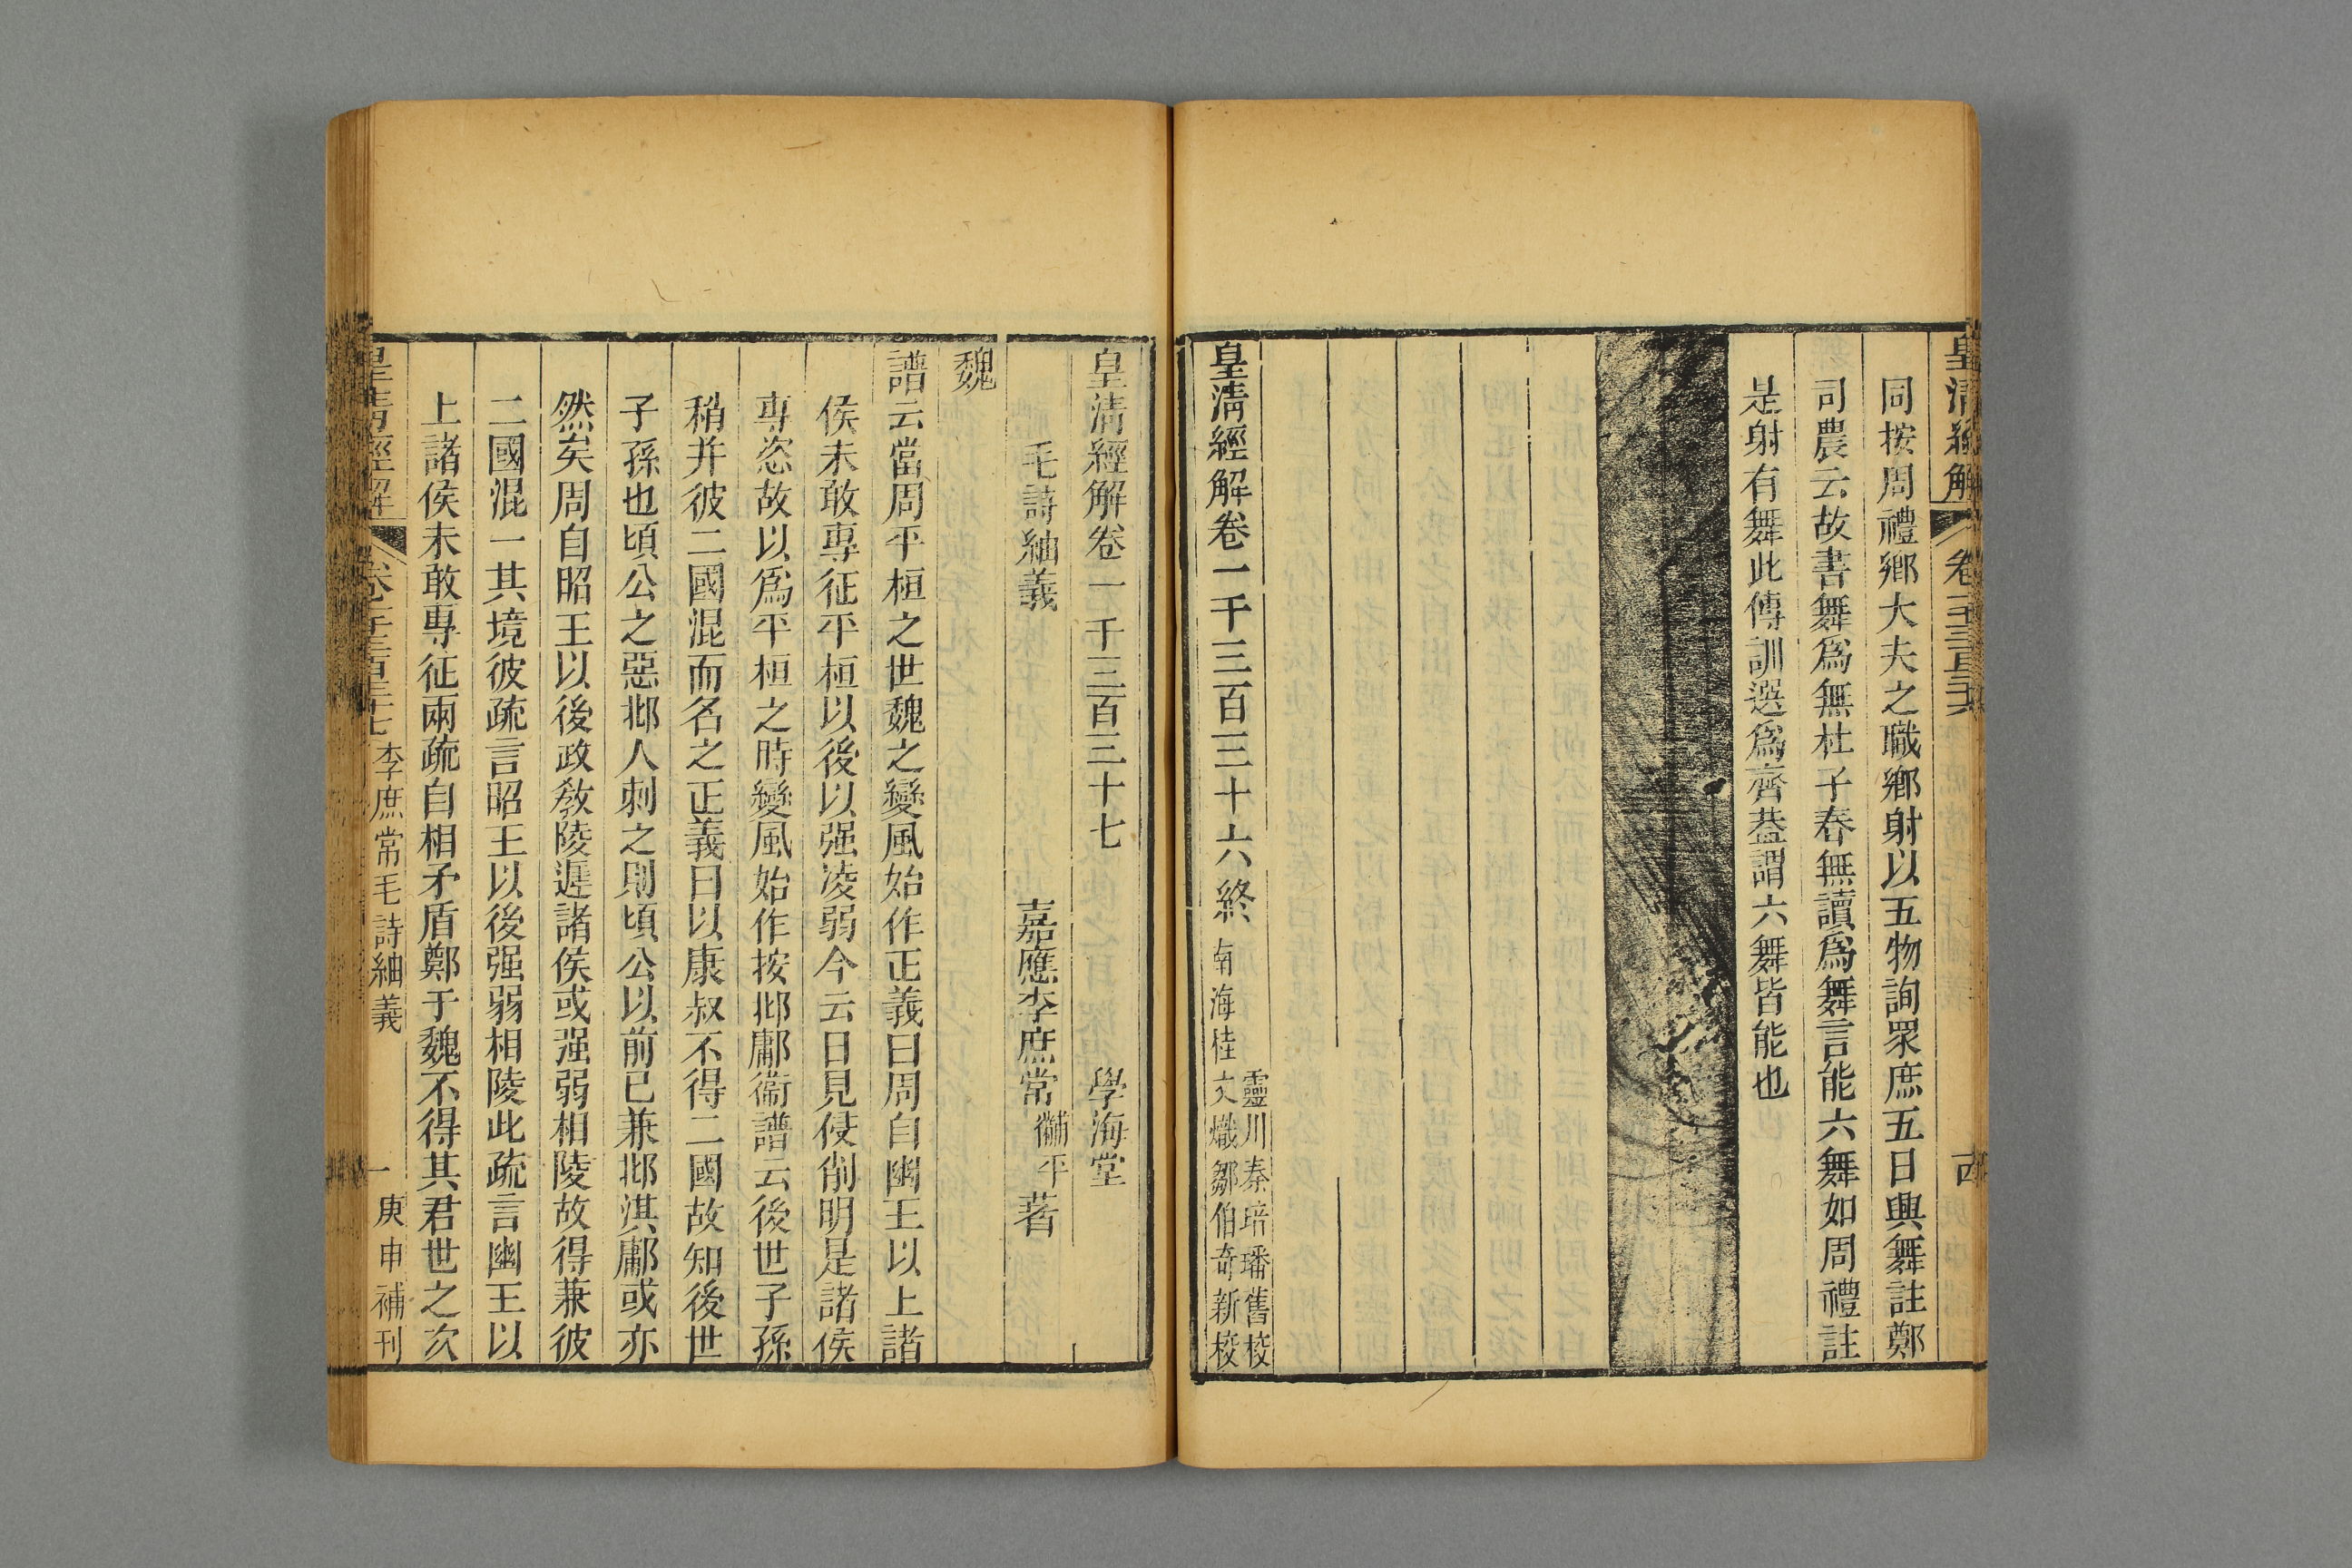 皇清經解 卷一千三百三十六
同按周禮鄉大夫之職鄉射以五物詢眾庶五曰興舞註鄭
司農云故書舞爲無杜子春無讀爲舞言能六舞如周禮註
是射有舞此傳訓選爲齊葢謂六舞皆能也
皇清經解卷一千三百三十六終
靈川秦培璠舊校
南海桂文熾鄒伯奇新校
皇清經解卷一千三百三十七 學海堂
毛詩紬義 嘉應李庶常黼平著
魏
譜云當周平桓之世魏之變風始作正義曰周自幽王以上諸
侯未敢專征平桓以後以强凌弱今云日見侵削明是諸侯
專恣故以爲平桓之時變風始作按邶鄘衞譜云後世子孫
稍并彼二國混而名之正義曰以康叔不得二國故知後世
子孫也頃公之惡邶人刺之則頃公以前已兼邶淇鄘或亦
然矣周自昭王以後政敎陵遲諸侯或强弱相陵故得兼彼
二國混一其境彼疏言昭王以後强弱相陵此疏言幽王以
上諸侯未敢專征兩疏自相矛盾鄭于魏不得其君世之次
皇清經解 卷一千三百三十七 李庶常毛詩紬義 一 庚申補刊